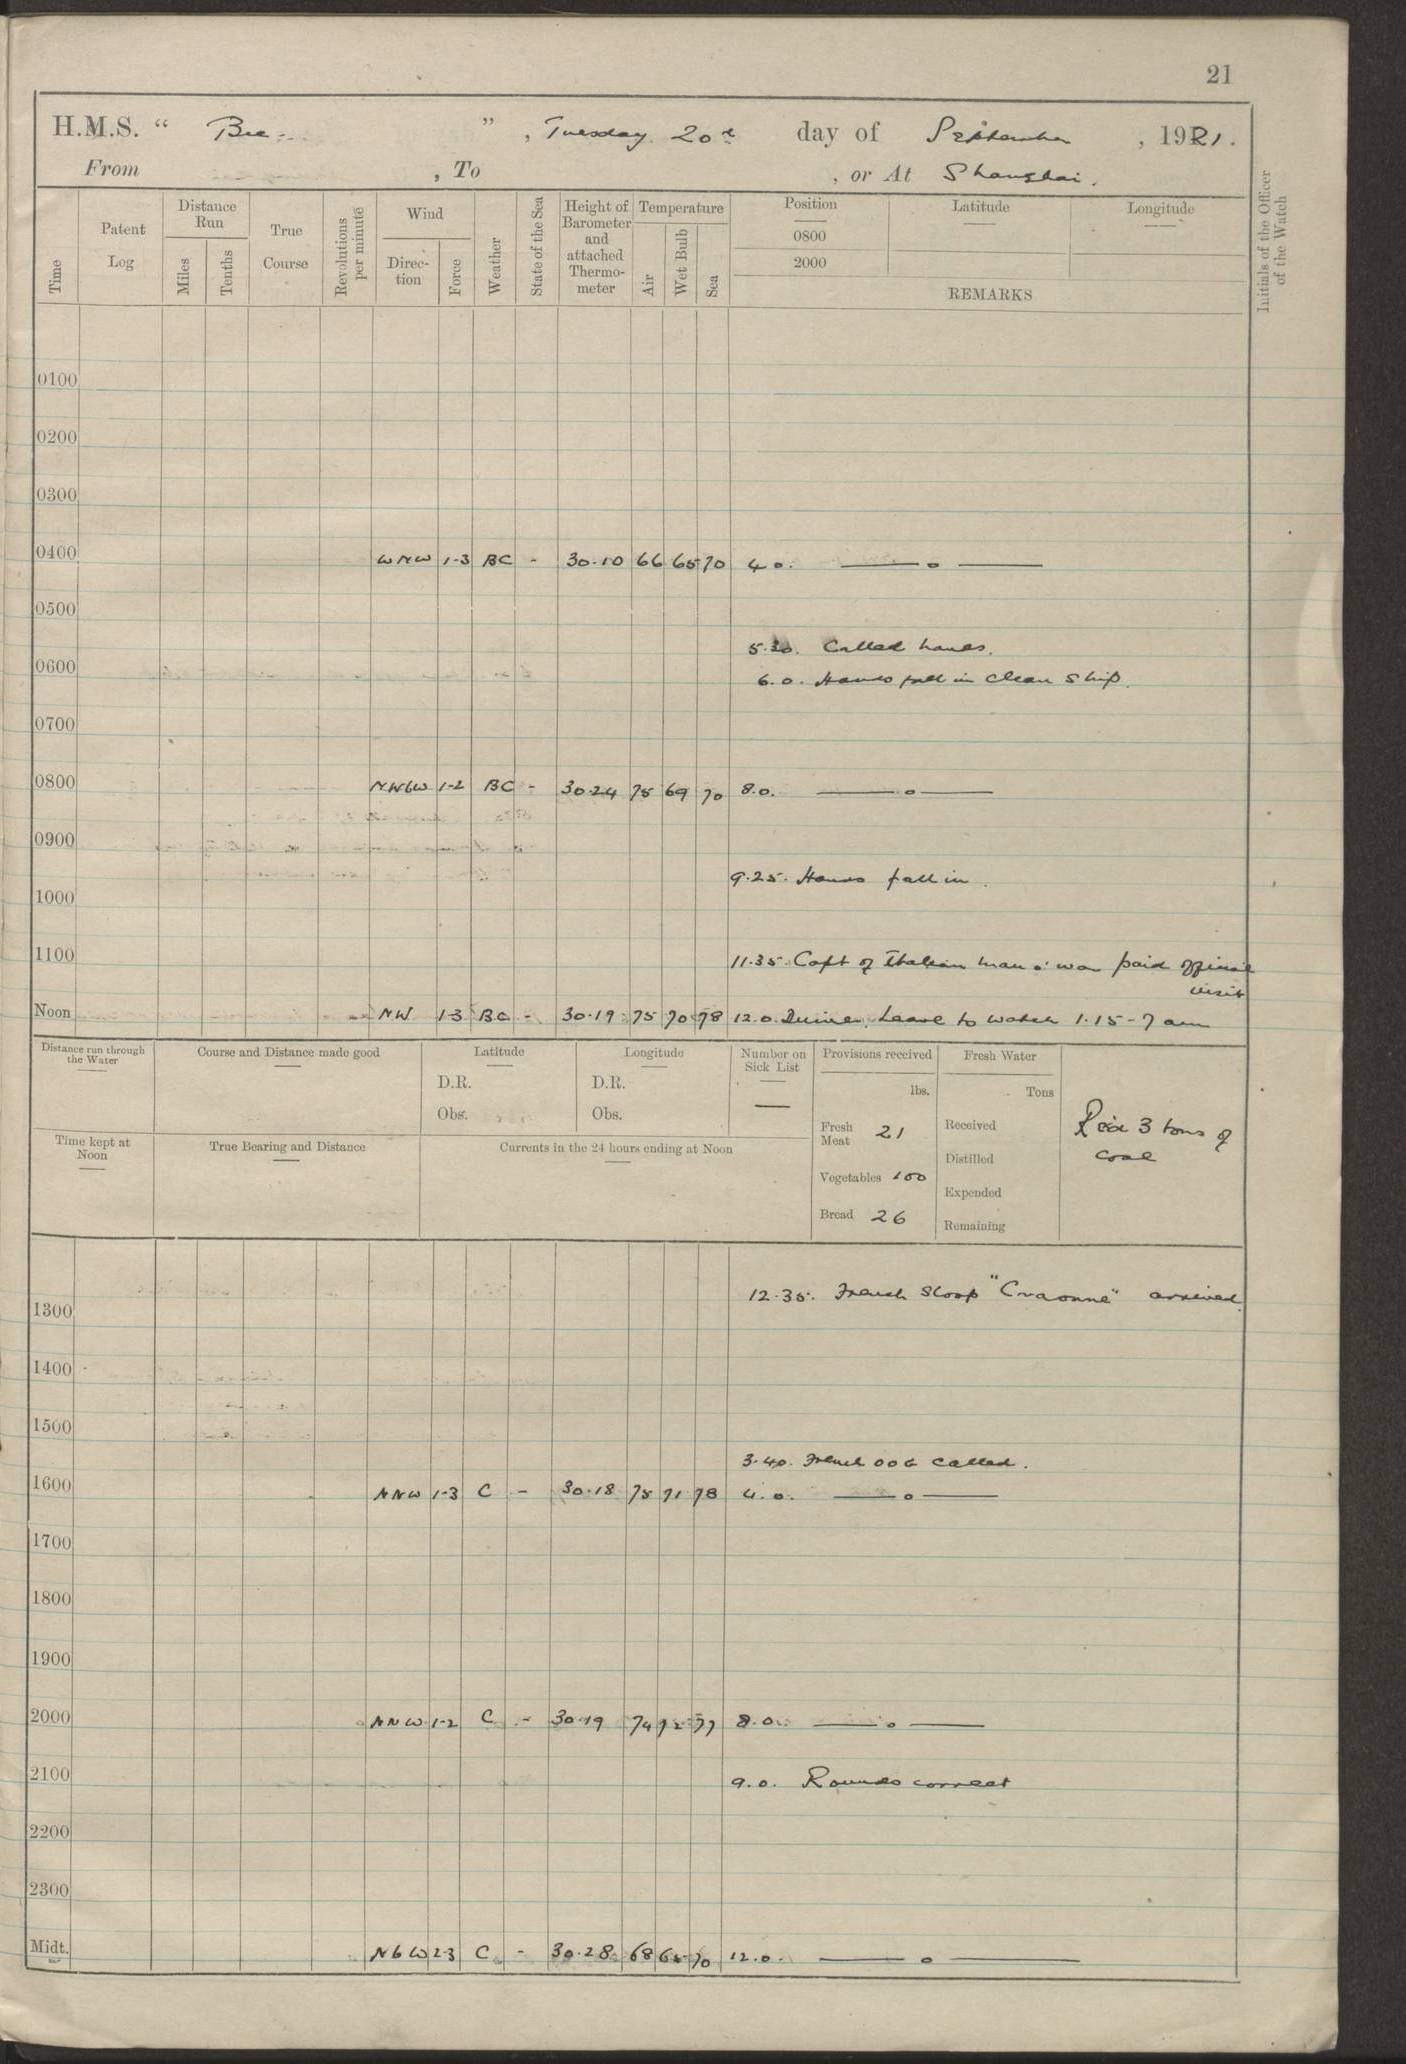 21
H.M.S. " Bee. ", Tuesday 20th day of September, 1921.
From , To , or At Shanghai.
Time
Patent Log
Distance Run
Miles
Tenths
True Course
Revolutions per minute
Wind
Direction
Force
Weather
State of the Sea
Height of Barometer and attached Thermo-meter
Temperature
Air
Wet Bulb
Sea
Position
0800
2000
Latitude
Longitude
REMARKS
Initials of the Officer of the Watch
0100
0200
0300
0400 WNW 1-3 BC - 30.10 66 65 70 4.0. — o —
0500
5.30. Called hands.
0600
6.0. Hands fall in Clean Ship.
0700
0800 NWbW 1-2 BC - 30.24 75 69 70 8.0. — o —
0900
9.25. Hands fall in.
1000
1100
11.35. Capt of Italian man o' war paid official
visit
Noon NW 1-3 BC - 30.19 75 70 78 12.0. Dinner. Leave to watch 1.15-7 am
Distance run through the Water
Course and Distance made good
Latitude
D.R.
Obs.
Longitude
D.R.
Obs.
Number on Sick List
—
Provisions received
lbs.
Fresh Meat 21
Vegetables 100
Bread 26
Fresh Water
Tons
Received
Distilled
Expended
Remaining
3 tons of
coal
Time kept at Noon
True Bearing and Distance
Currents in the 24 hours ending at Noon
12.35. French Sloop "Craonne" arrived.
1300
1400
1500
3.40. French OOG called.
1600 NNW 1-3 C - 30.18 75 71 78 4.0. — o —
1700
1800
1900
2000 NNW 1-2 C - 30.19 74 72 77 8.0. — o —
2100
9.0. Rounds correct
2200
2300
Midt. NbW 2-3 C - 30.28 68 65 70 12.0. — o —